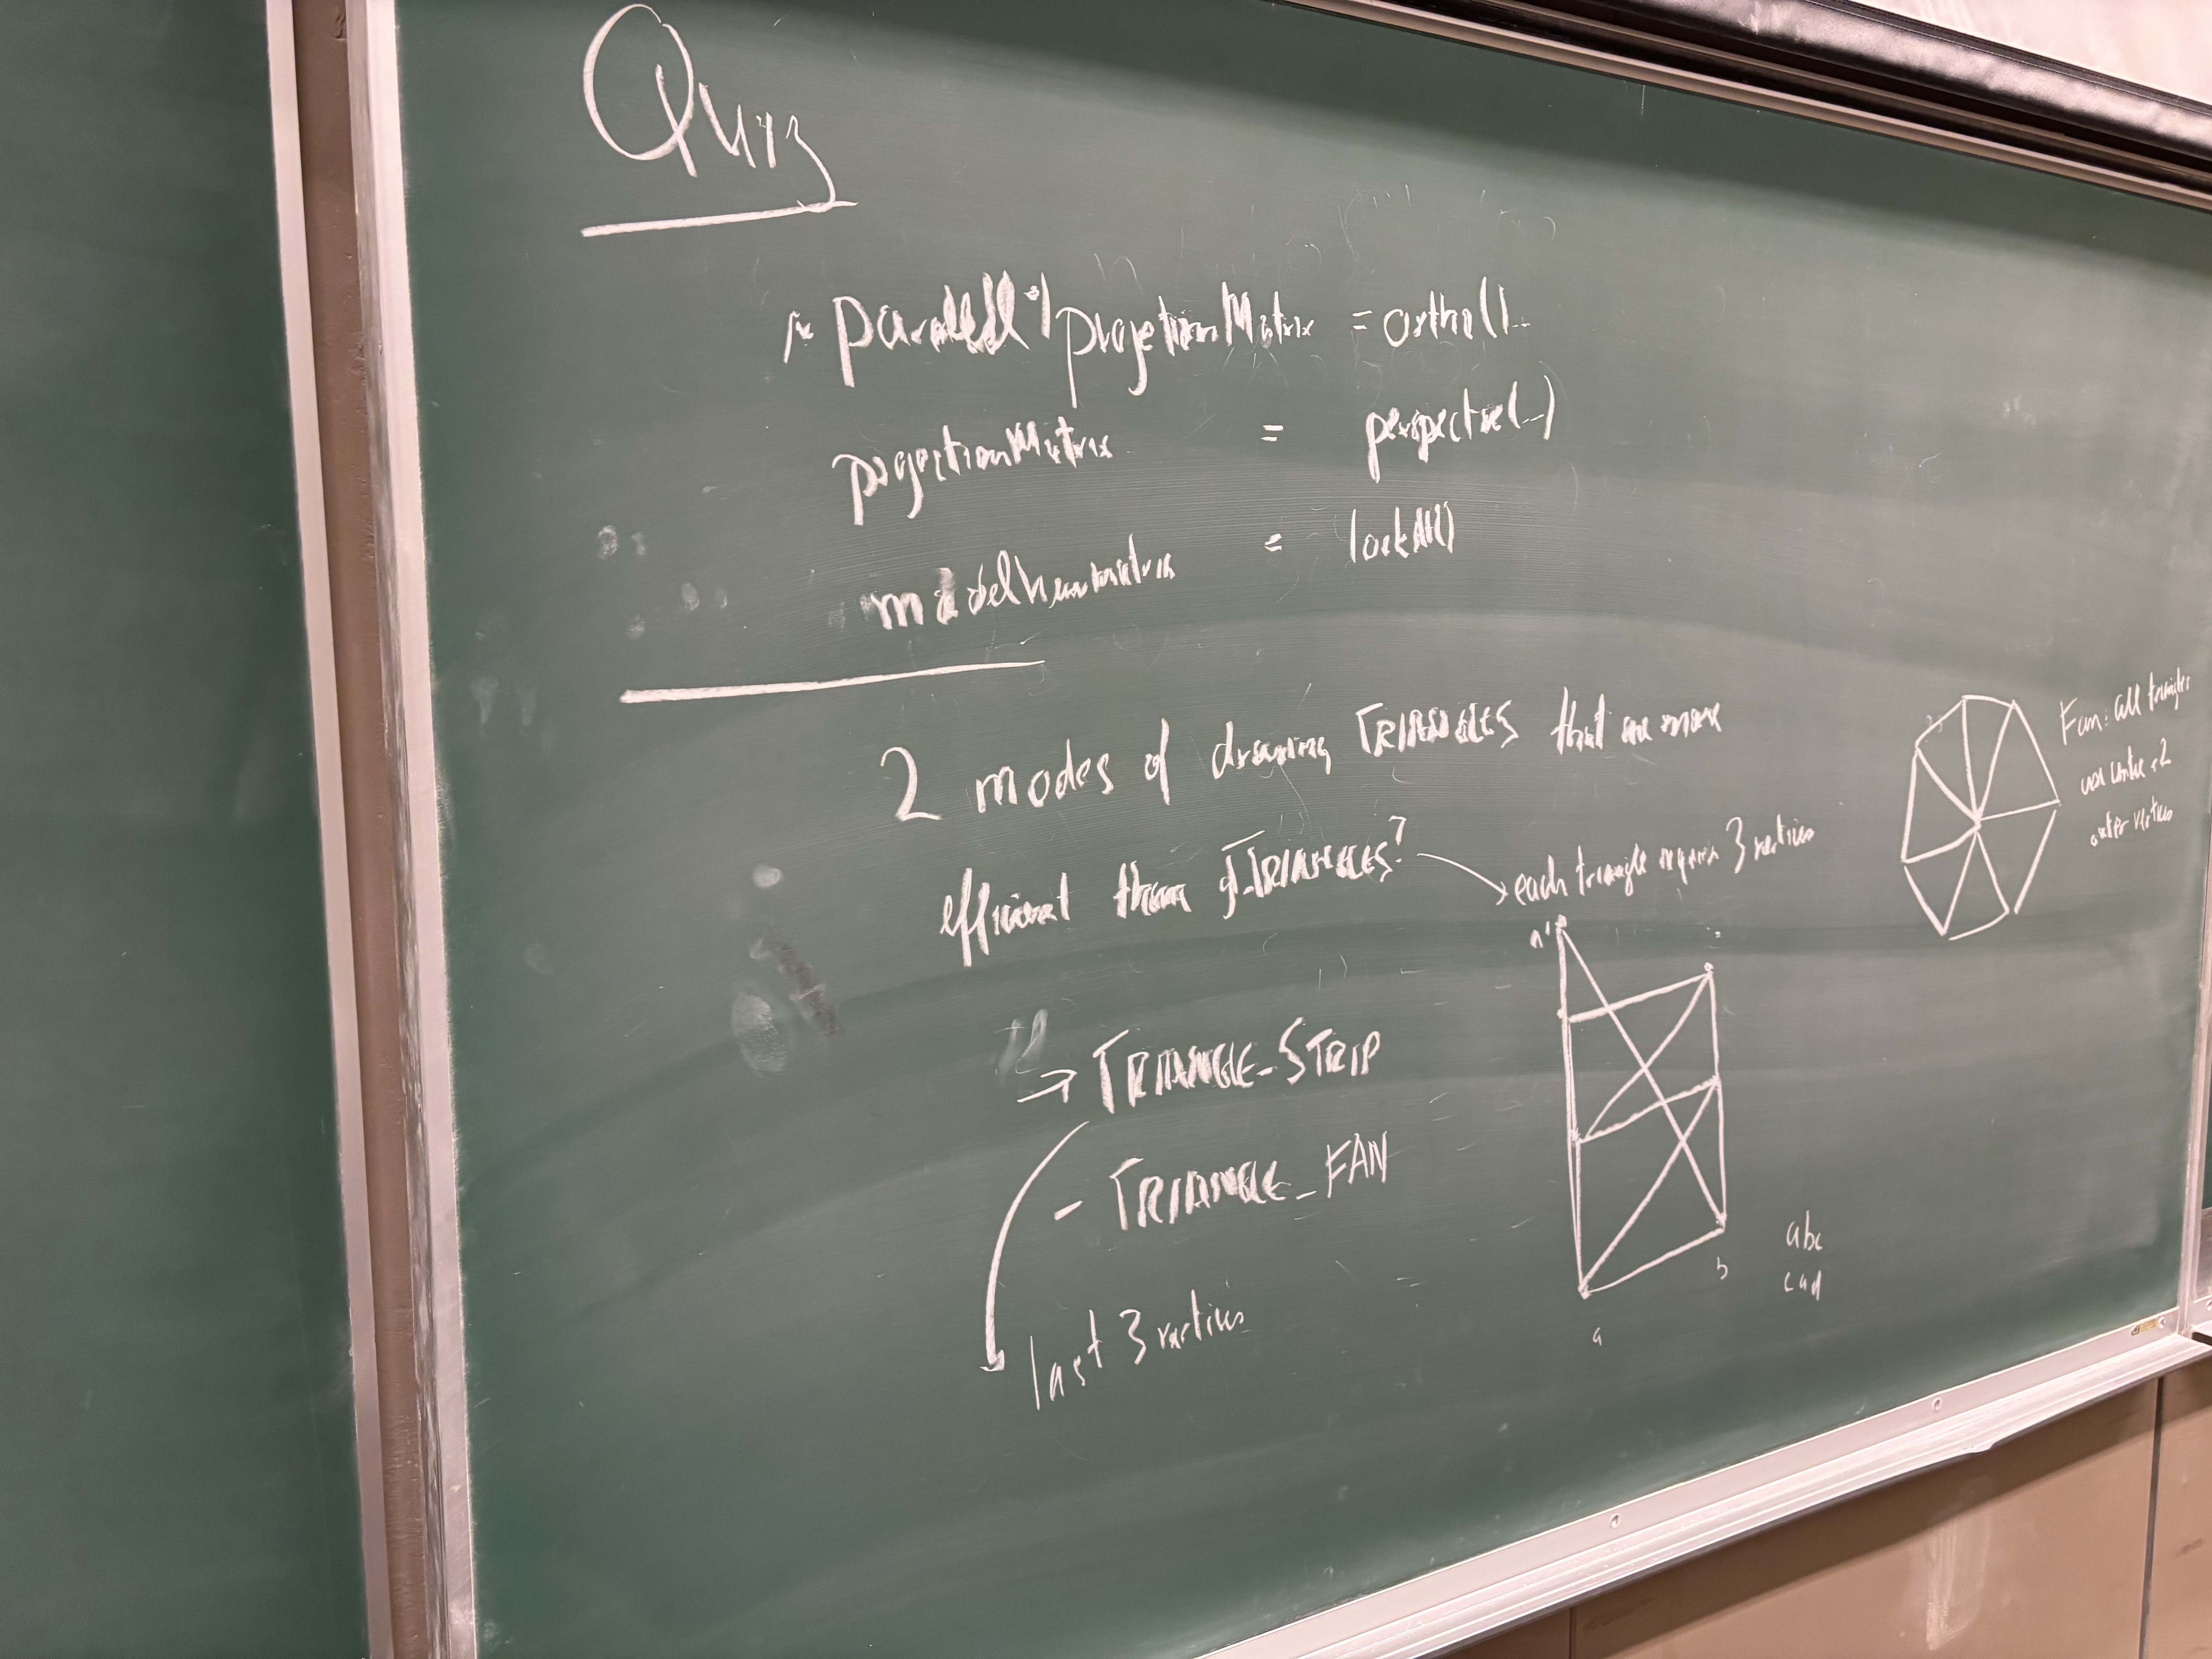 Quiz
parallel projectionMatrix = ortho(...
projectionMatrix = perspective(...)
modelViewMatrix = lookAt()
2 modes of drawing TRIANGLES that are more
efficient than gl.TRIANGLES?
each triangle requires 3 vertices
→ TRIANGLE_STRIP
- TRIANGLE_FAN
last 3 vertices
a
b
abc
cad
Fan: all triangles
use centre + 2
outer vertices